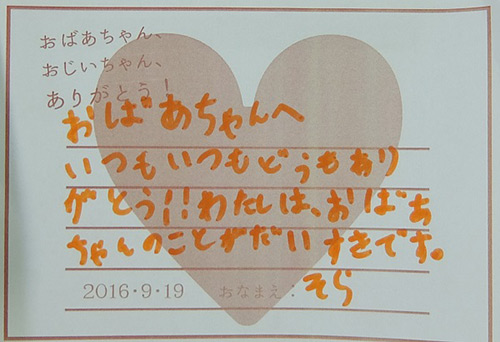 おばあちゃん、
おじいちゃん、
ありがとう!
おばあちゃんへ
いつもいつもどうもあり
がとう!!わたしは、おばあ
ちゃんのことがだいすきです。
2016・9・19 おなまえ:そら